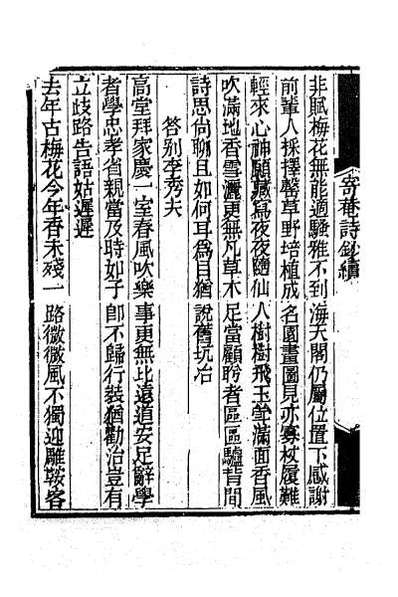 寄菴詩鈔續
非賦梅花無能適騷雅不到海天閣仍屬位置下感謝
前輩人採擇罄草野培植成名園畫圖見亦寡杖履難
輕來心神願藏寫夜夜隨仙人樹樹飛玉堂滿面香風
吹滿地香雪灑更無凡草木足當顧盼者區區驢背間
詩思尙聊且如何耳為目猶說舊坑冶
答别李秀夫
高堂拜家慶一室春風吹樂事更無比遠道安足辭學
者學忠孝省親當及時如子卽不歸行裝猶勸治豈有
立歧路告語姑遲遲
去年古梅花今年香未殘一路微微風不獨迎雕鞍客